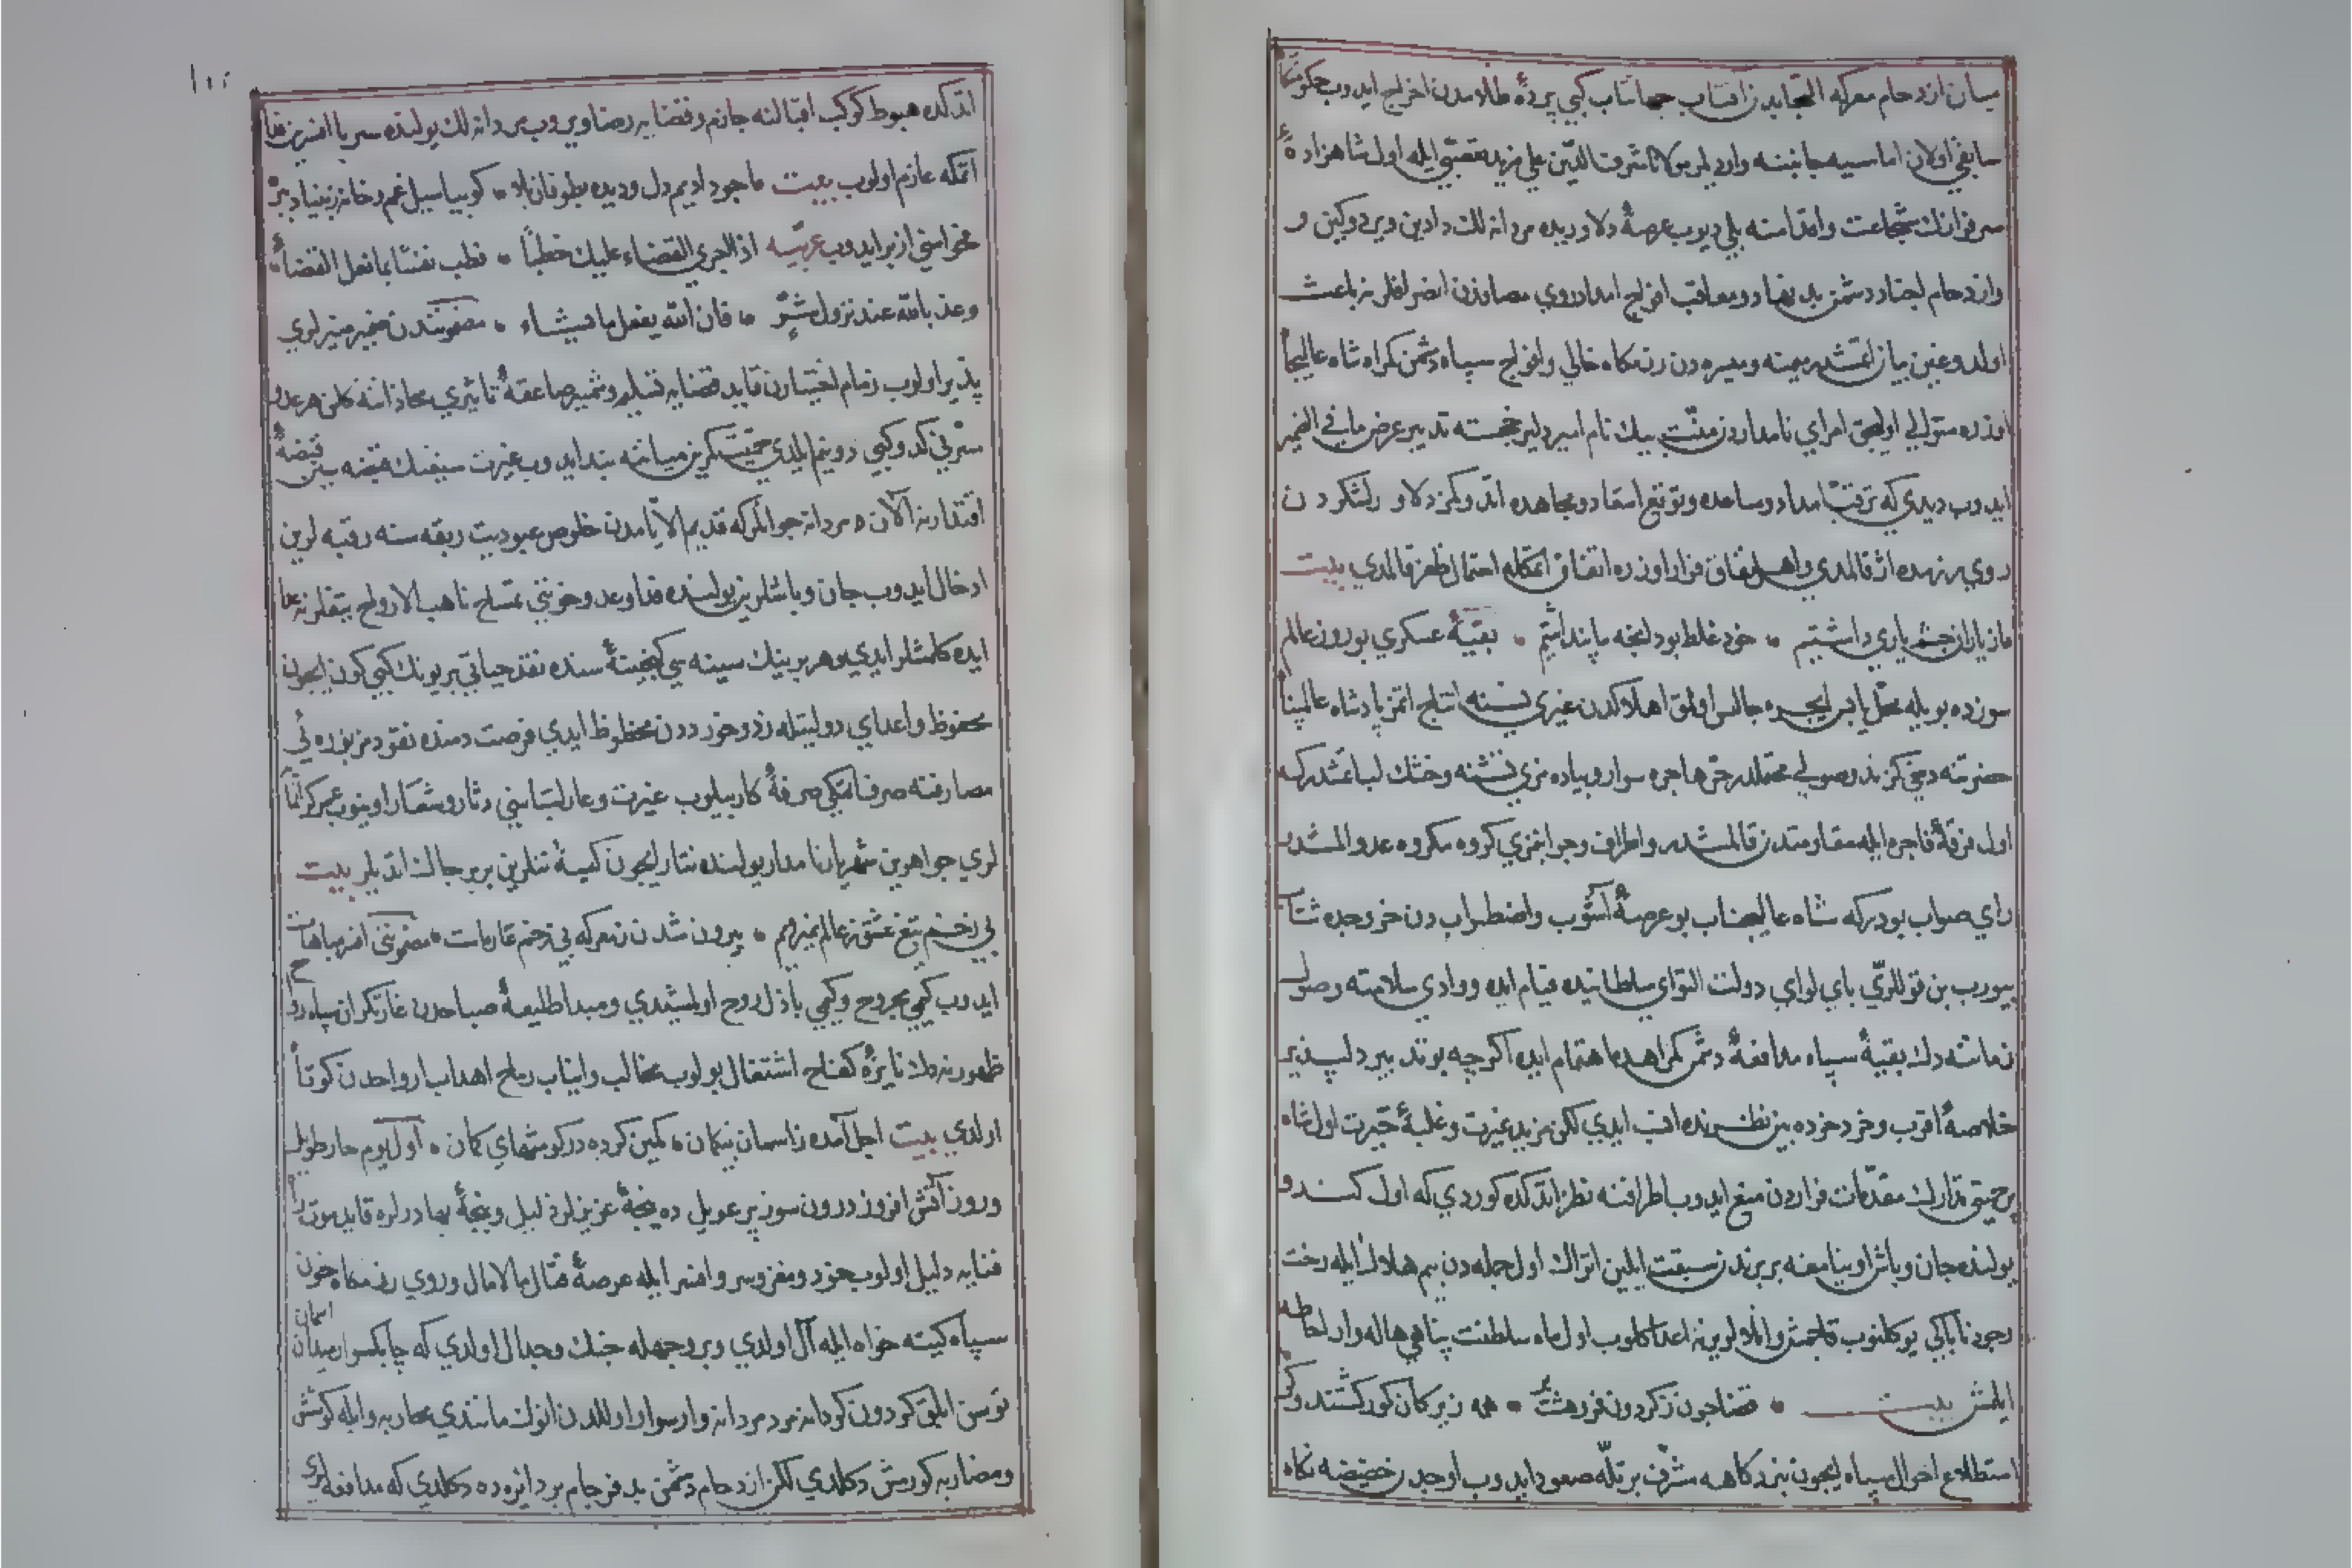 میان ازدحام معرکه التجایدن آفتاب جهانتاب کبی پردهٔ ظلامدن اخراج ایدوب حکومتکا
سابقی اولان اماسیه جانبنه واردیلر مولانا شرف الدین علی مزیه تعصبی ایله اول شاهزادهٔ
سرفرازك شجاعت واقدامنه بلی دیوب عرصهٔ دلاوریده مردانه لك دادین ویردوکین و
وازدحام اجناد دشمن بد نهاد ومعاقب افواج امداد روی
اولدوغین بیان اتمشدر میمنه ومیسره دن رزمکاه خالی وافواج سپاه دشمن کمراه شاه عالیجا
اوزره متوالی اولیجق امرای نامداردن منت بیك نام امیر دلیر خجسته تدبیر عرض ما فی الضمیر
ایدوب دیدی که ترقب امداد ومساعده وتوقع اسعاد ومجاهده اتدوکمز دلاور لشکردن
روی رزمده اثر قالمدی واهل نفاق فرار اوزره اتفاق اتمکله احتمال ظفر قالمدی بیت
ما ز یاران چشم یاری داشتیم ٠ خود غلط بود انچه ما پنداشتیم ٠ بقیهٔ عسکری بو روز عالم
سوزده بویله محل یابس ایچره جالس اولمق اهلاکدن غیری نسنه انتاج اتمز پادشاه عالمپنا
حضرتنه دخی کزند وصولی محتملدر حر هاجره سوار وپیاده مزی تشنه وخشك لب اتمشدر که
اول فرقهٔ فاجره ایله مقاومتدن قالمشدر واطراف وجوانبمزی کروه مکروه عدو المشدر
رای صواب بودر که شاه عالیجناب بو عرصهٔ آشوب واضطراب دن خروجده شتاب
بیورب بن قوللری بای لوای دولت التوای سلطانیده قیام ایده ووادی سلامته وصول
زماننه دك بقیهٔ سپاه مدافعهٔ دشمن کمراهده اهتمام ایده اکرچه بو تدبیر دلپذیر
خلاصه اقرب وخرد خرده بین نظرنده انسب ایدی لکن مزید غیرت وغلبهٔ حیرت اول شاه
پر حمیتی تدارك مقدمات فراردن منع ایدوب اطرافنه نظر اتدکده کوردی که اول کند
یولنده جان وباش اوینامغه بربرندن سبقت ایلین اتراك اول حمله دن بیم هلاك ایله رخت
وجود ناپاکی یوکلنوب قاچمش واعدا کلوب اول ماه سلطنت پناهی هاله وار احاطه
ایلمش بیت ٠ قضا چون ز کردون فروهشت پر ٠ همه زیرکان کور کشتند وکر
استطلاع احوال سپاه ایچون نبردکاهه مشرف بر تلّه صعود ایدوب اوجدن حضیضه نکاه
١٠٢
اتدکده هبوط کوکب اقبالنه جازم وقضایه رضا ویروب مردانه لك یولنده سر یا افسرین فدا
اتمکه عازم اولوب بیت ما چو دادیم دل ودیده بطوفان بلا ٠ کو بیا سیل غم وخانه ز بنیاد ببر
فحواسنی ازبر ایدوب عربیه اذا الجری القضاء علیك خطبًا ٠ فطب نفسًا بما فعل القضاء
وعذ بالله عند نزول شرٍّ ٠ فان الله یفعل ما یشاء ٠ مضمونندن ضمیر منیرلری
پذیر اولوب زمام اختیارن قاید قضایه تسلیم وشمشیر صاعقهٔ تاثیری محاذاتنه کلن هر عدو
دو نیم ایلدی حمیت کمرین میاننه بند ایدوب غیرت سیفنك قبضه سین قبضهٔ
اقتدارینه الان مردانه جوانلر که قدیم الایامدن خلوص عبودیت ربقه سنه رقبه لرین
ادخال ایدوب جان وباشلرین یولنده فدا وعد وخونی تمساح ناهب الارواح تیغلرینه غذا
ایده کلمشلر ایدی وهر بر بینك سینه سی کنجینهٔ سنده نقد حیاتی بر بونك کبی کون ایچون
محفوظ واعدای دولتیله زد وخورددن محظوظ ایدی فرصت دمنده نقود مزبوره ئی
مصارفنه صرف اتمکی صرفهٔ کار بیلوب غیرت وعار لباسینی دثار وشعار اوینوب عمر کرانما
لری جواهرین شهریار نامدار یولنده نثار ایچون کیسهٔ تنلرین بربر چاك اتدیلر بیت
بی زخم تیغ عشق ز عالم نمیروم ٠ بیرون شدن ز معرکه بی زخم عار ماست ٠ مضمونی افرمباهات
ایدوب کیمی مجروح وکیمی باذل روح اولمشدی ومبدا طلیعهٔ صباحدن غارتکران سپاه رواح
ظهورینه دك نایرهٔ کفاح اشتغال بولوب مخالب وانیاب رماح اهداب ارواحدن کوتاه
اولدی بیت اجل آمده ز اسمان بیکمان ٠ کمین کرده در کوشهای کمان ٠ اول یوم حار طویل
وروز اتش افروز درون سوز پر عویل ده نیجهٔ عزیزلر ذلیل ونیجهٔ بهادرلره قاید موت راه
فنایه دلیل اولوب خود ومغز وسر وافسر ایله عرصهٔ قتال مالامال وروی رزمکاه خون
سپاه کینه خواه ایله آل اولدی وبر وجهله جنك وجدال اولدی که چابکسوار میدان اسمان
توسن ابلق کردون کردانه نرد مردانه وار سوار اولالدن انوك مانندی محاربه وایله کوشش
ومضاربه کورمش دکلدی لکن ازدحام دشمن بد فرجام بر دائره ده دکلدی که مدافعه لری